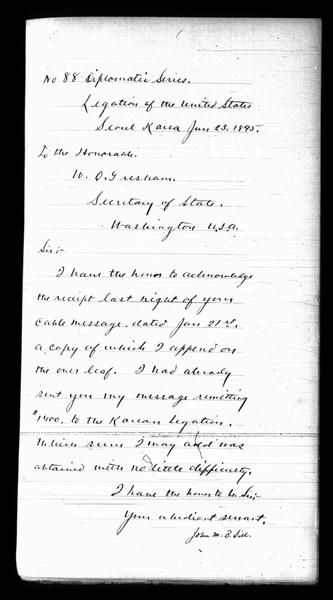 No 88 Diplomatic Series.
Legation of the United States
Seoul Korea Jan 23, 1895.
To the Honorable.
W. Q. Gresham.
Secretary of State.
Washington U.S.A.
Sir:-
I have the honor to acknowledge
the receipt last night of your
cable message, dated Jan 21st.
a copy of which I append on
the over leaf. I had already
sent you my message remitting
$1400. to the Korean Legation.
Which sum I may add was
obtained with no little difficulty.
I have the honor to be Sir:-
Your obedient servant.
John M. B. Sill.